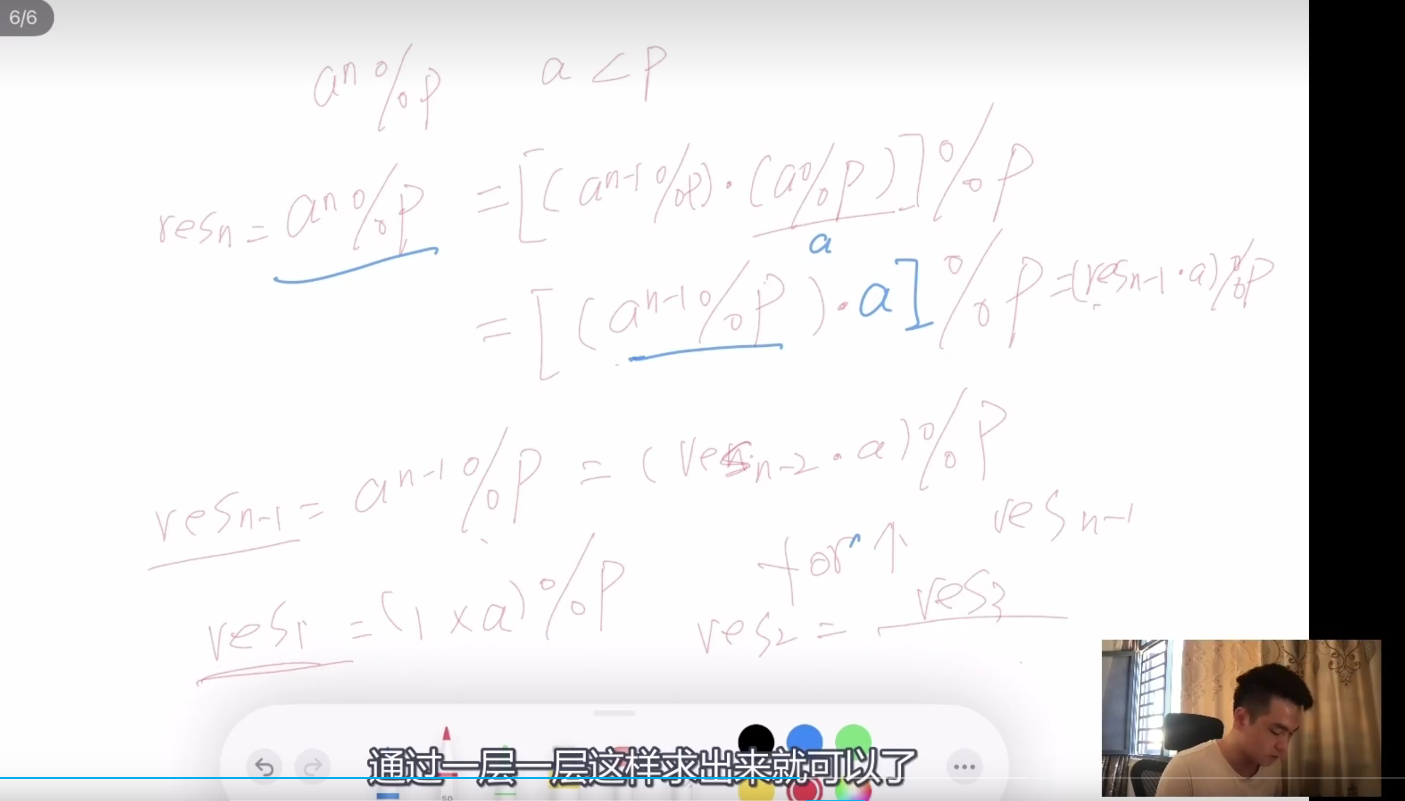 6/6
aⁿ%P a<P
resₙ = aⁿ%P = [(aⁿ⁻¹%P)·(a%P)]%P
a
= [(aⁿ⁻¹%P)·a]%P =(resₙ₋₁·a)%P
resₙ₋₁ = aⁿ⁻¹%P = (resₙ₋₂·a)%P
for↑ resₙ₋₁
res₁ = (1×a)%P res₂ = res₃
通过一层一层这样求出来就可以了
50